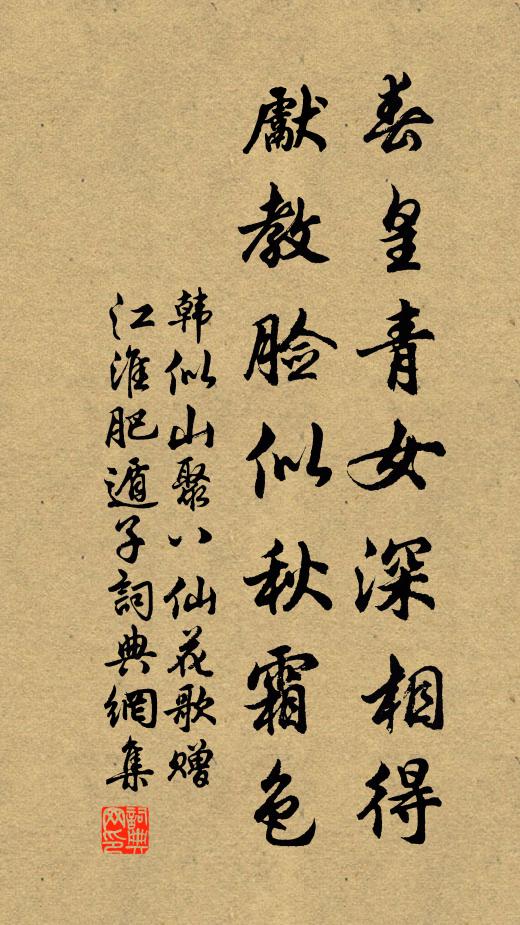 春皇青女深相得
獻教脸似秋霜色
韩似山聚八仙花歌赠
江淮肥遁子詞典網集
詞典网印